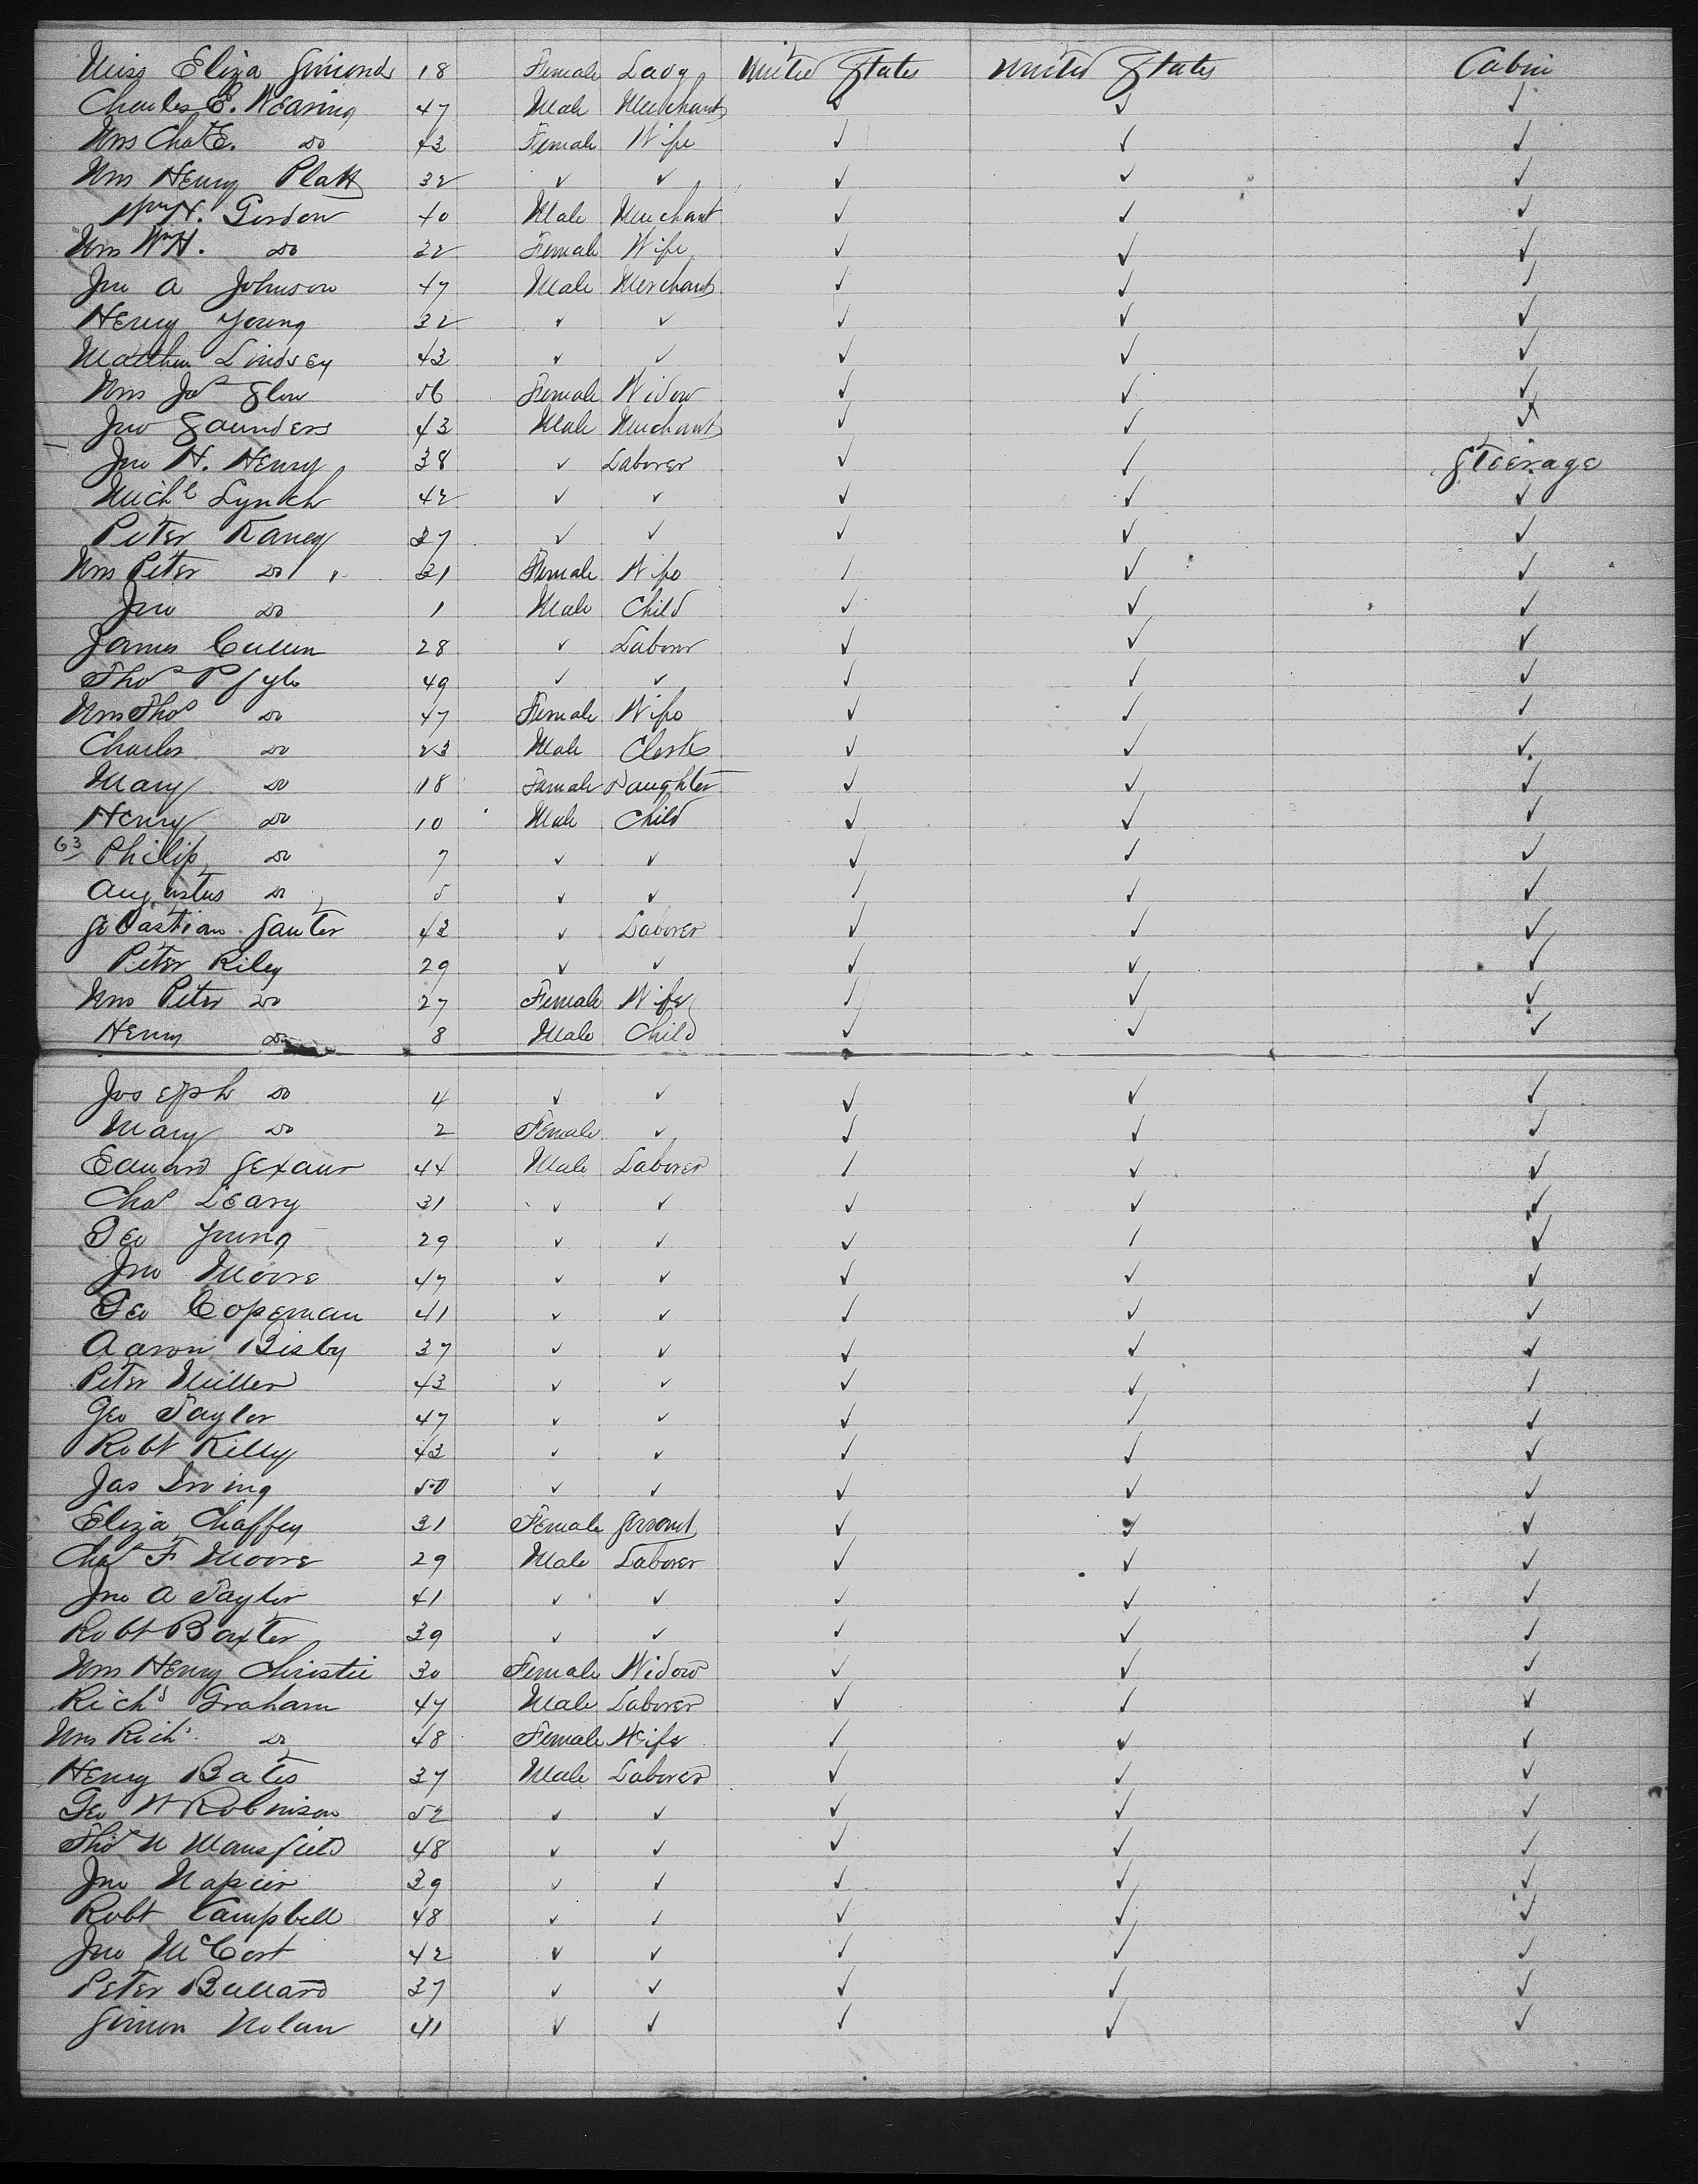 Miss Eliza Simonds 18 Female Lady United States United States Cabin
Charles E. Wearing 47 Male Merchant ✓ ✓ ✓
Mrs Chas E. Do 43 Female Wife ✓ ✓ ✓
Mrs Henry Platt 32 ✓ ✓ ✓ ✓ ✓
Wm H. Gordon 40 Male Merchant ✓ ✓ ✓
Mrs Wm H. Do 32 Female Wife ✓ ✓ ✓
Jno A Johnson 47 Male Merchant ✓ ✓ ✓
Henry Young 32 ✓ ✓ ✓ ✓ ✓
Matthew Lindsey 43 ✓ ✓ ✓ ✓ ✓
Mrs Jas 56 Female Widow ✓ ✓ ✓
Jno Saunders 43 Male Merchant ✓ ✓ ✓
Jno H. Henry 38 ✓ Laborer ✓ ✓ Steerage
Michl Lynch 42 ✓ ✓ ✓ ✓ ✓
Peter Kaney 37 ✓ ✓ ✓ ✓ ✓
Mrs Peter Do 31 Female Wife ✓ ✓ ✓
Jno Do 1 Male Child ✓ ✓ ✓
James Cullen 28 ✓ Laborer ✓ ✓ ✓
Thos 49 ✓ ✓ ✓ ✓ ✓
Mrs Thos Do 47 Female Wife ✓ ✓ ✓
Charles Do 23 Male Clerk ✓ ✓ ✓
Mary Do 18 Female Daughter ✓ ✓ ✓
Henry Do 10 Male Child ✓ ✓ ✓
63 Philip Do 7 ✓ ✓ ✓ ✓ ✓
Augustus Do 5 ✓ ✓ ✓ ✓ ✓
Sebastian Sauter 43 ✓ Laborer ✓ ✓ ✓
Peter Riley 29 ✓ ✓ ✓ ✓ ✓
Mrs Peter Do 27 Female Wife ✓ ✓ ✓
Henry Do 8 Male Child ✓ ✓ ✓
Joseph Do 4 ✓ ✓ ✓ ✓ ✓
Mary Do 2 Female ✓ ✓ ✓ ✓
Edward Sexaur 44 Male Laborer ✓ ✓ ✓
Chas Leary 31 ✓ ✓ ✓ ✓ ✓
Geo Young 29 ✓ ✓ ✓ ✓ ✓
Jno Moore 47 ✓ ✓ ✓ ✓ ✓
Geo Copeman 41 ✓ ✓ ✓ ✓ ✓
Aaron Bisby 37 ✓ ✓ ✓ ✓ ✓
Peter Miller 43 ✓ ✓ ✓ ✓ ✓
Geo Taylor 47 ✓ ✓ ✓ ✓ ✓
Robt Kelly 43 ✓ ✓ ✓ ✓ ✓
Jas Irving 50 ✓ ✓ ✓ ✓ ✓
Eliza Chaffey 31 Female Servant ✓ ✓ ✓
Chas F Moore 29 Male Laborer ✓ ✓ ✓
Jno A Taylor 41 ✓ ✓ ✓ ✓ ✓
Robt Baxter 39 ✓ ✓ ✓ ✓ ✓
Mrs Henry Christie 30 Female Widow ✓ ✓ ✓
Richd Graham 47 Male Laborer ✓ ✓ ✓
Mrs Richd Do 48 Female Wife ✓ ✓ ✓
Henry Bates 37 Male Laborer ✓ ✓ ✓
Geo W Robinson 52 ✓ ✓ ✓ ✓ ✓
Thos N Mansfield 48 ✓ ✓ ✓ ✓ ✓
Jno Napier 39 ✓ ✓ ✓ ✓ ✓
Robt Campbell 48 ✓ ✓ ✓ ✓ ✓
Jno McCort 42 ✓ ✓ ✓ ✓ ✓
Peter Bullard 37 ✓ ✓ ✓ ✓ ✓
Simon Nolan 41 ✓ ✓ ✓ ✓ ✓